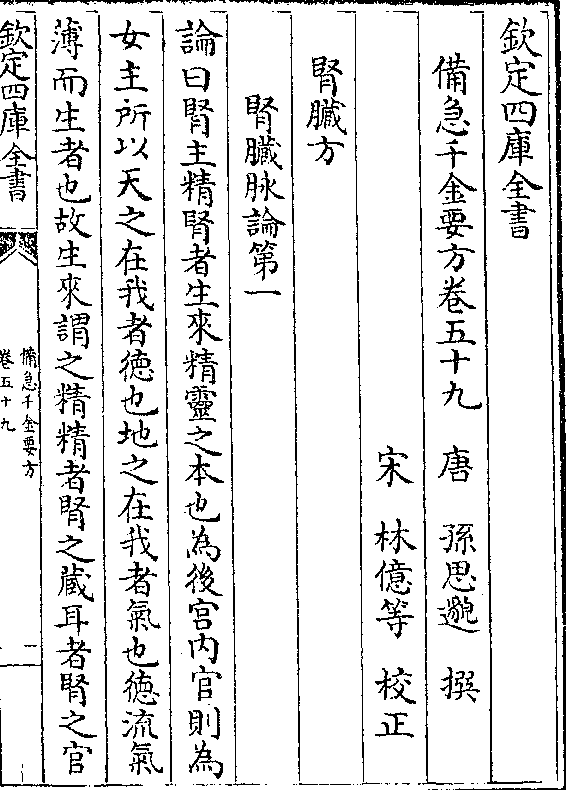 欽定四庫全書
備急千金要方卷五十九 唐 孫思邈 撰
宋 林億等 校正
腎臟方
腎臟脉論第一
論曰腎主精腎者生來精靈之本也為後宮内官則為
女主所以天之在我者德也地之在我者氣也德流氣
薄而生者也故生來謂之精精者腎之藏耳者腎之官
欽定四庫全書
備急千金要方
卷五十九
二